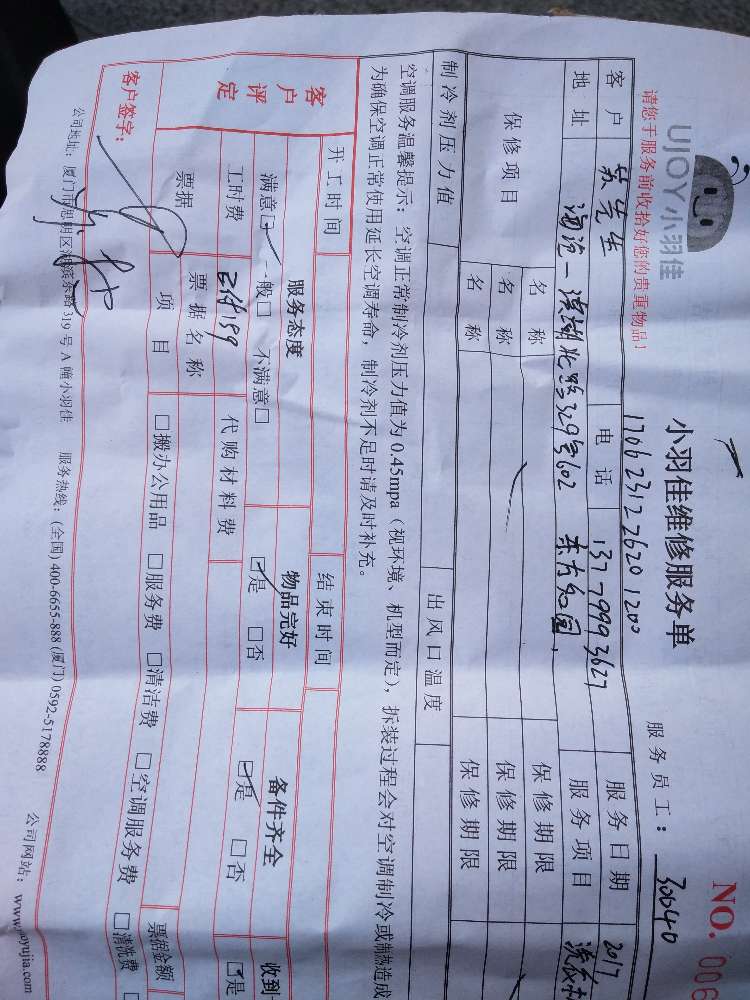 UJOY小羽佳
小羽佳维修服务单
NO. 006
请您于服务前收拾好您的贵重物品！
1706231226201200
服务员工：30040
客户 苏先生 电话 13779993627 服务日期 2017
地址 海沧一滨湖北路329号602 东方如园 服务项目
保修项目 名称 保修期限
名称 保修期限
名称 保修期限
制冷剂压力值 出风口温度
空调服务温馨提示：空调正常制冷剂压力值为0.45mpa（视环境、机型而定），拆装过程会对空调制冷或制热造成
为确保空调正常使用延长空调寿命，制冷剂不足时请及时补充。
开工时间 结束时间
客户评定 服务态度 物品完好 备件齐全 收到
满意□ 一般□ 不满意□ □是 □否 □是 □否 □是
工时费 代购材料费
票据 票据名称 票据金额
项目 □搬办公用品 □服务费 □清洁费 □空调服务费 □清洗费
客户签字：
公司地址：厦门市思明区湖滨东路319号A幢小羽佳 服务热线：(全国) 400-6655-888 (厦门) 0592-5178888 公司网站：www.xiaoyujia.com